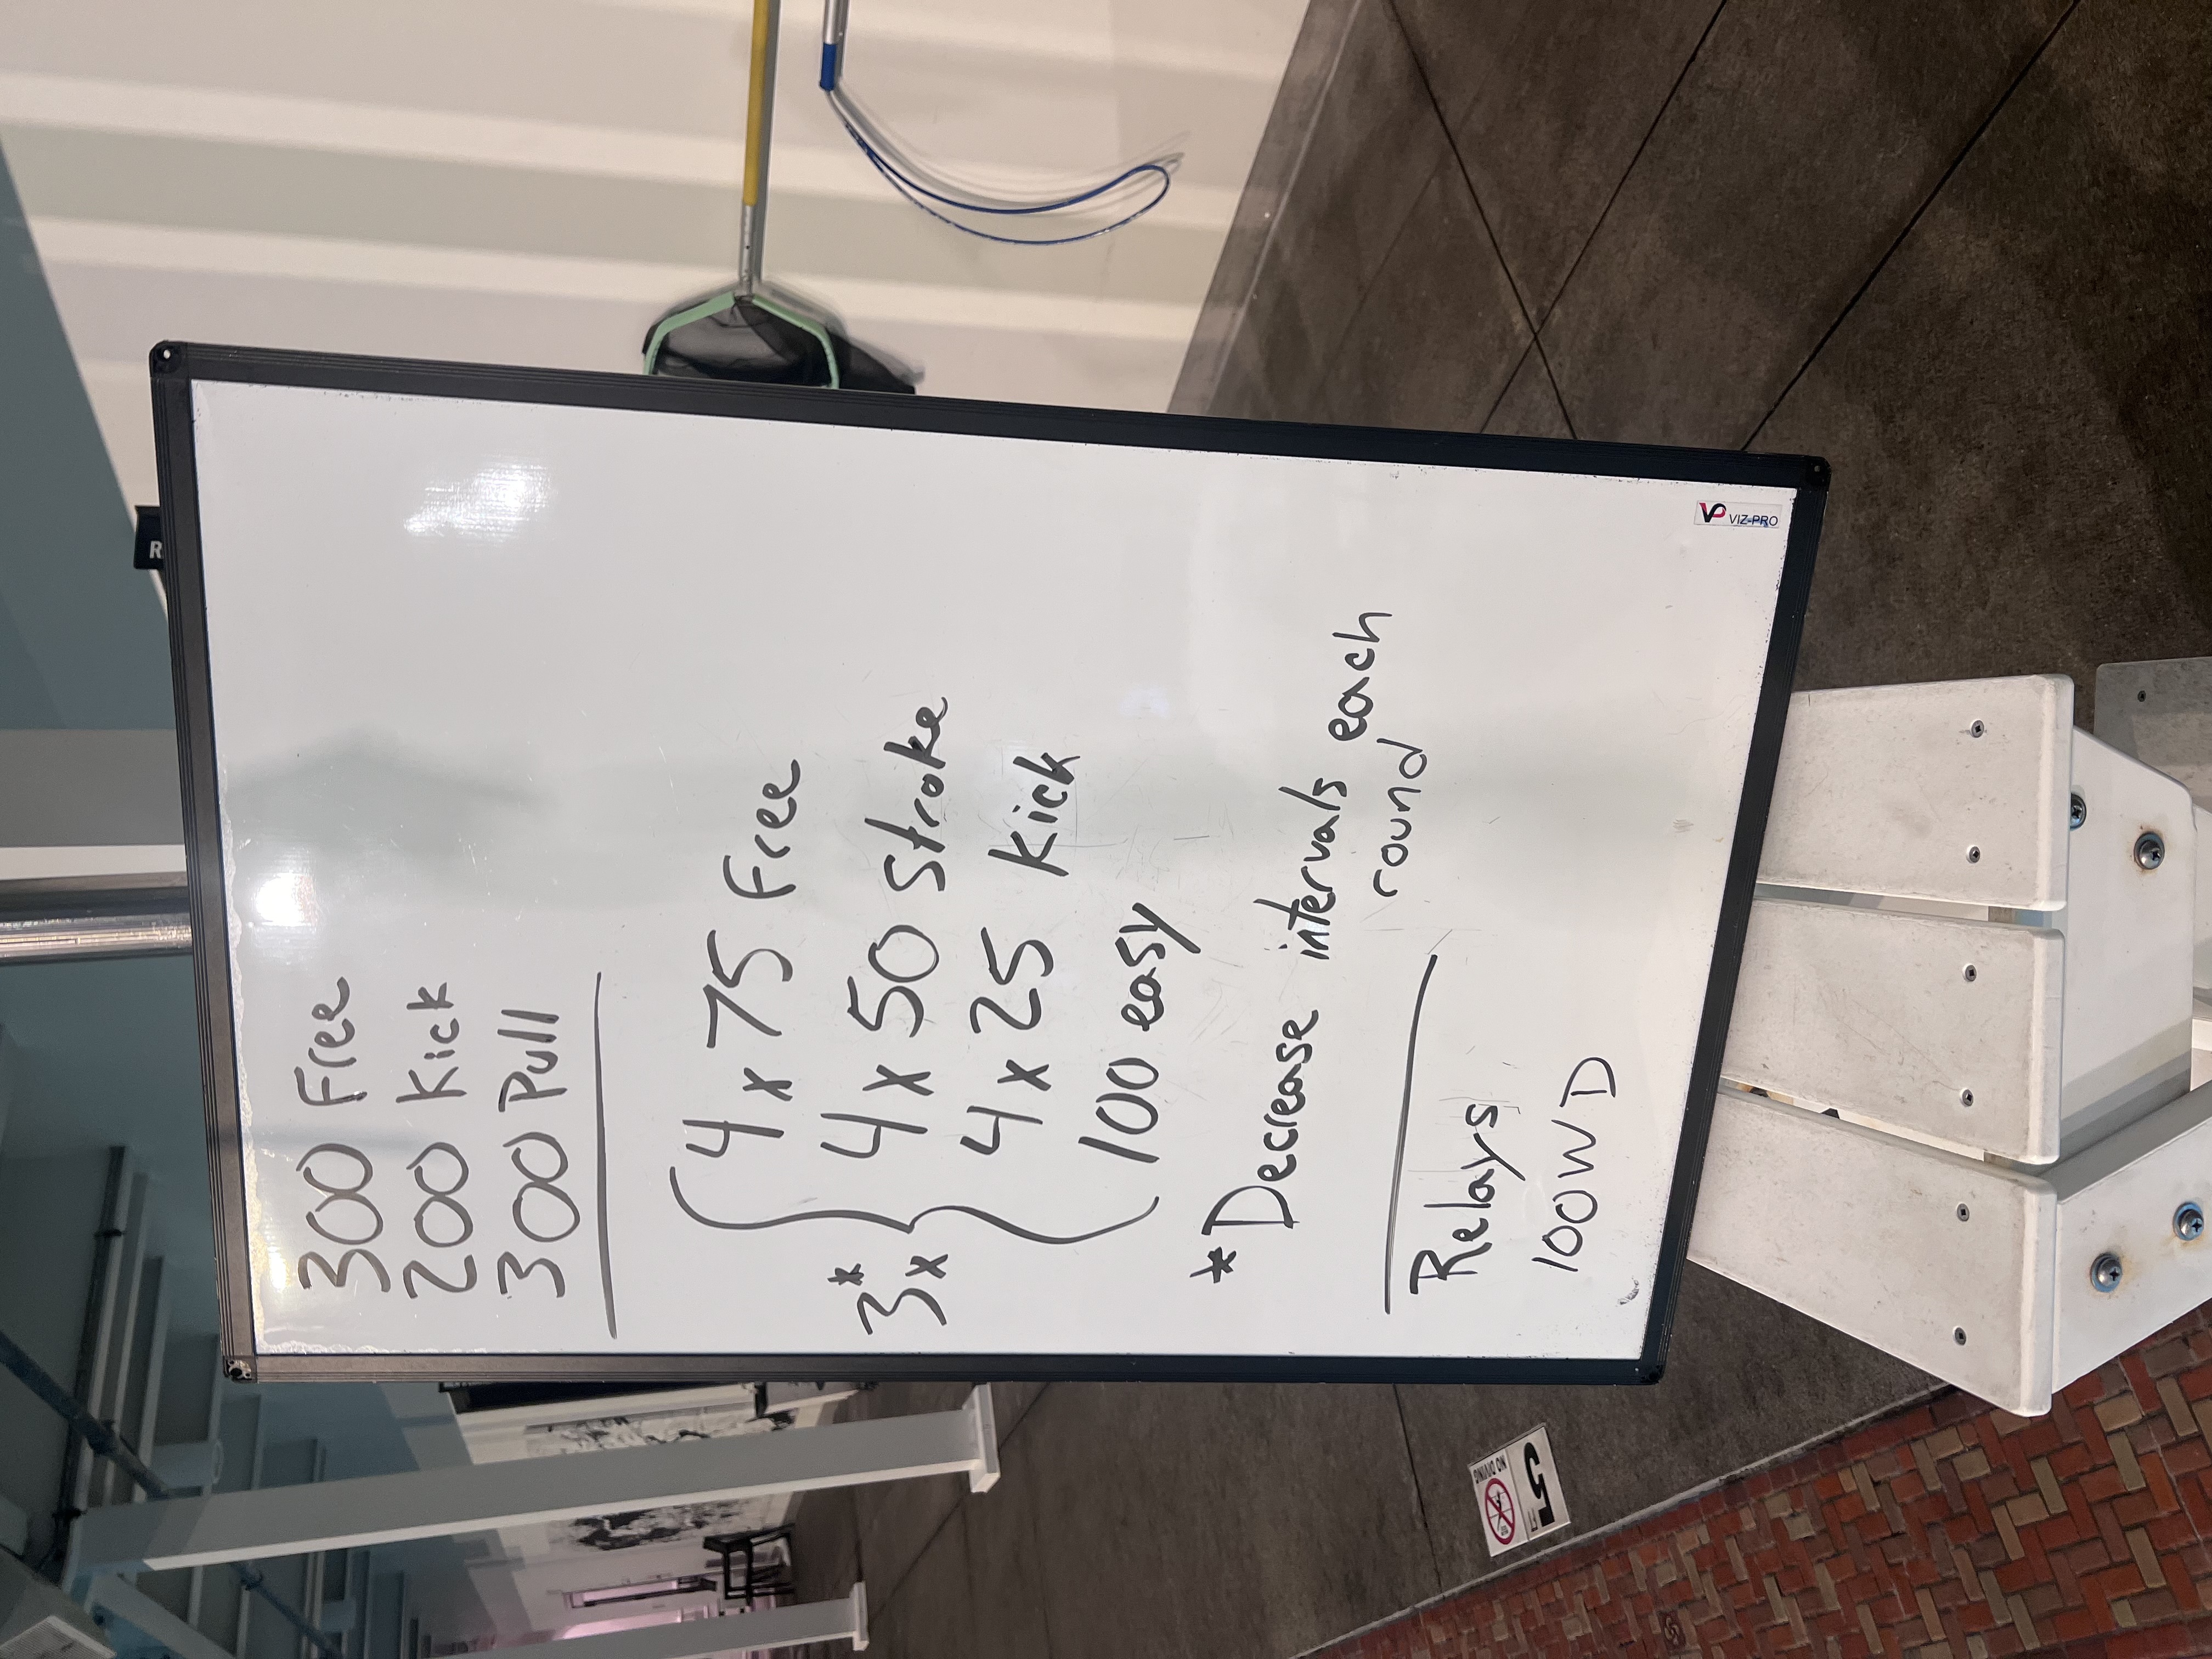 300 Free
200 Kick
300 Pull
3* x { 4 x 75 Free
4 x 50 Stroke
4 x 25 Kick
100 easy
*Decrease intervals each
round
Relays
100 WD
VP VIZ-PRO
R
5 FT
NO DIVING